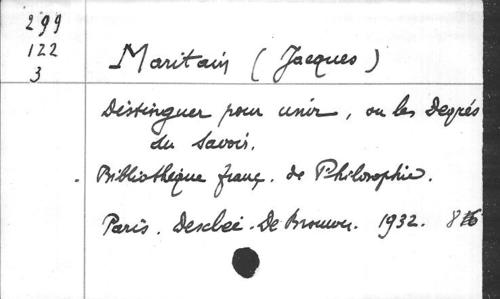 299
122
3
Maritain (Jacques)
Distinguer pour unir, ou les Degrés
du Savoir.
Bibliothèque franç. de Philosophie.
Paris. Desclée. De Brouwer. 1932.